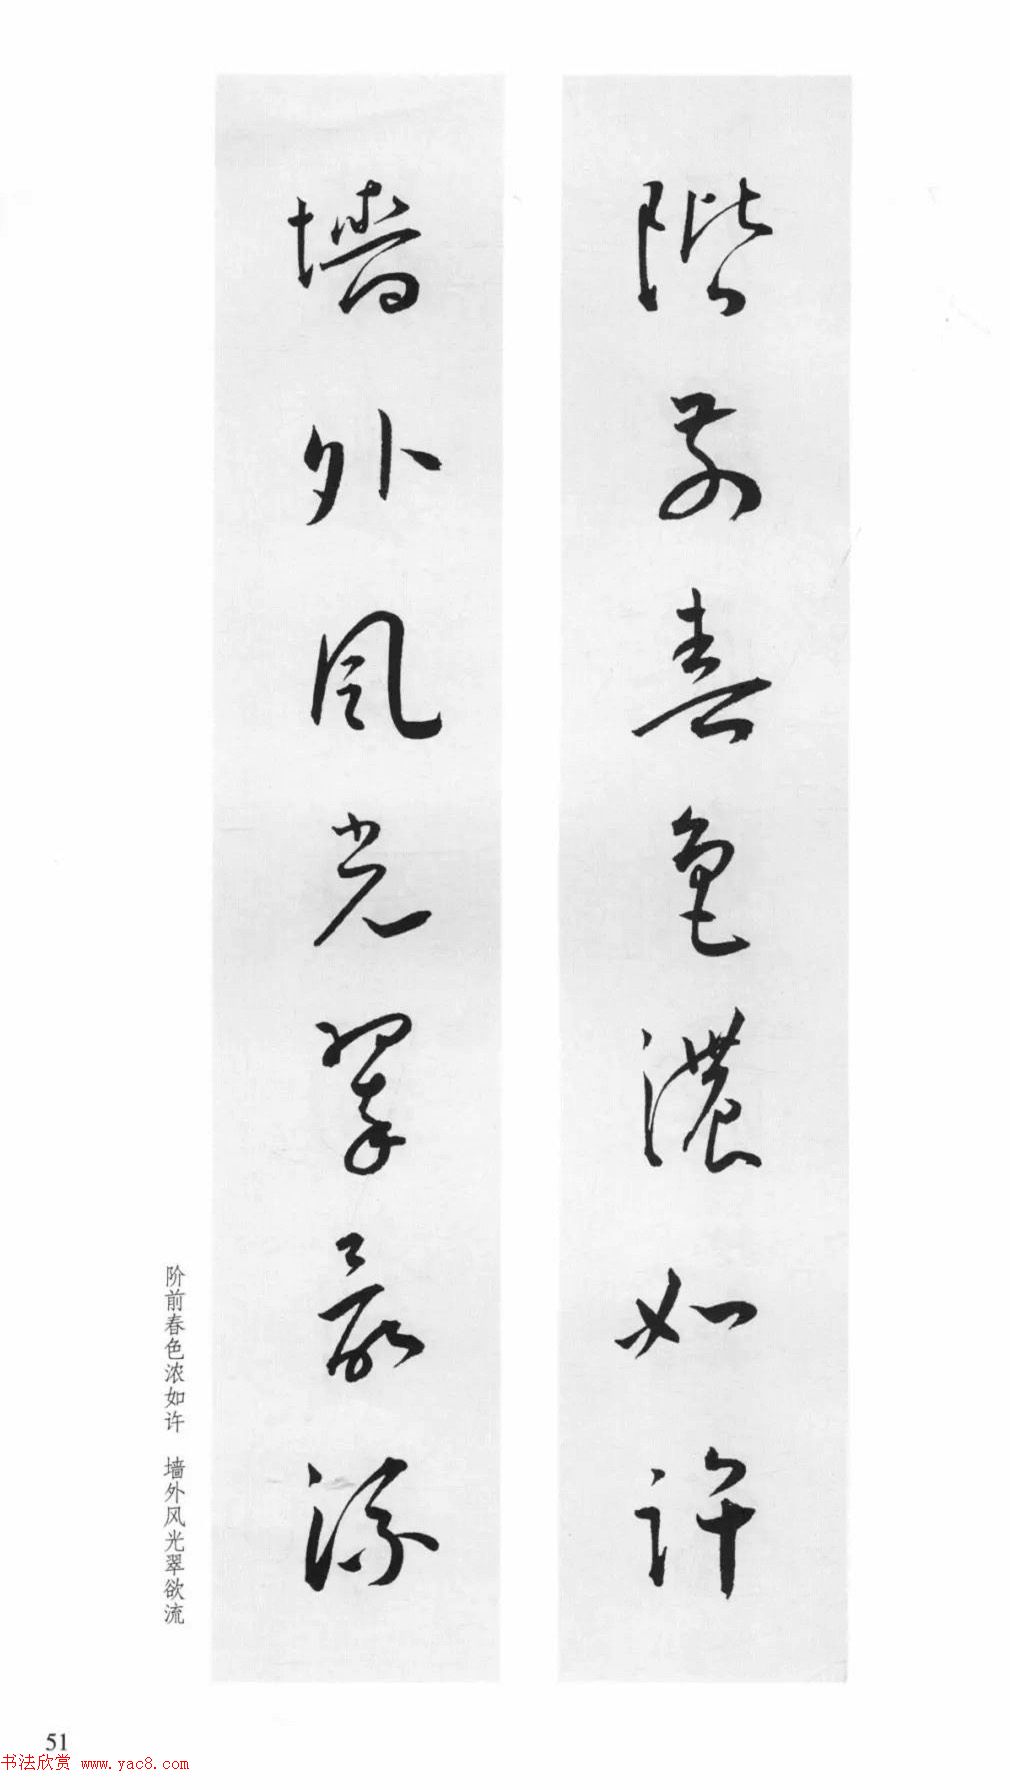 階前春色濃如許
墻外風光翠欲流
阶前春色浓如许　墙外风光翠欲流
51
书法欣赏 www.yac8.com